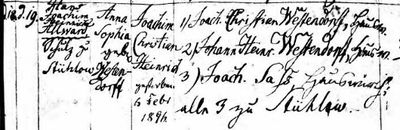 18. 2. 19.
Hans
Joachim
Heinrich
Allward
Schulz zu
Stühlow
Anna
Sophia
geb.
Westen-
dorff
Joachim
Christian
Heinrich
gestorben
6 Febr
1894
1) Joach. Christian Westendorf, Häusler.
2) Johann Heinr. Westendorf,
3) Joach. Saß, Häuswirth;
alle 3 zu Stühlow.